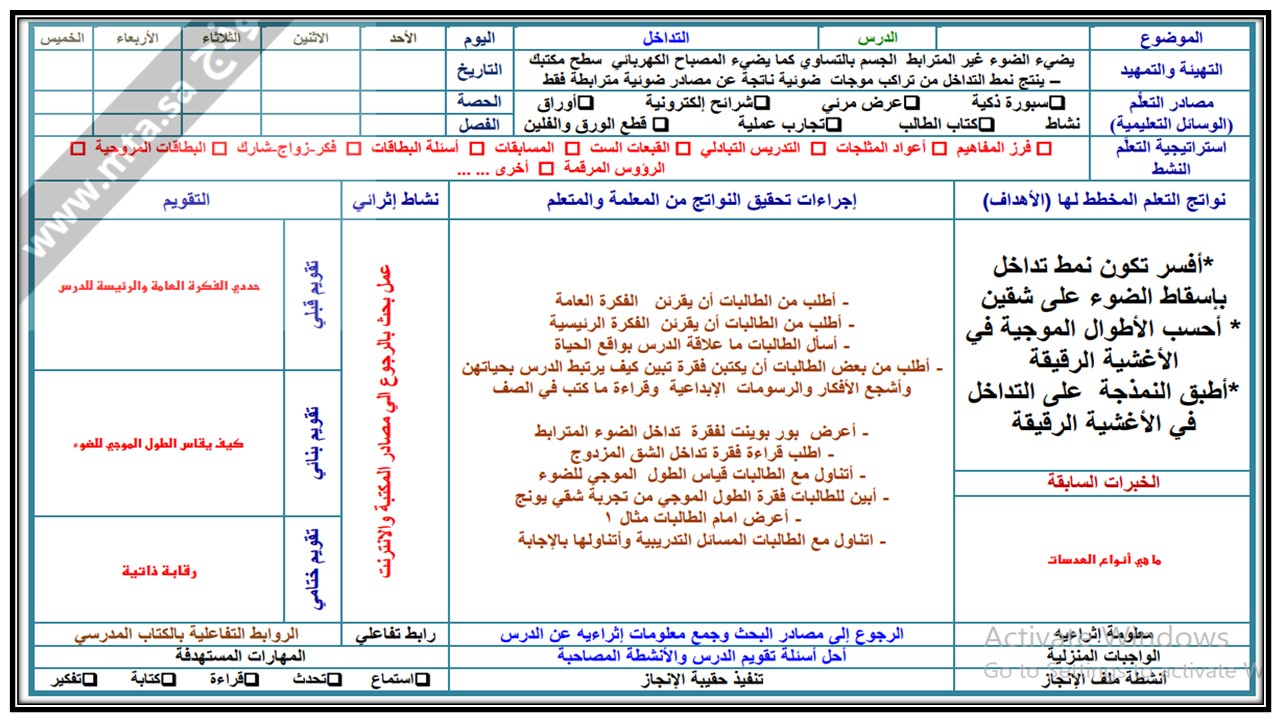 الموضوع
الدرس
التداخل
اليوم
الأحد
الاثنين
الثلاثاء
الأربعاء
الخميس
التهيئة والتمهيد
يضيء الضوء غير المترابط الجسم بالتساوي كما يضيء المصباح الكهربائي سطح مكتبك
– ينتج نمط التداخل من تراكب موجات ضوئية ناتجة عن مصادر ضوئية مترابطة فقط
التاريخ
مصادر التعلّم
(الوسائل التعليمية)
❑سبورة ذكية ❑عرض مرئي ❑شرائح إلكترونية ❑أوراق
نشاط ❑كتاب الطالب ❑تجارب عملية ❑ قطع الورق والفلين
الحصة
الفصل
استراتيجية التعلّم
النشط
□ فرز المفاهيم □ أعواد المثلجات □ التدريس التبادلي □ القبعات الست □ المسابقات □ أسئلة البطاقات □ فكر-زواج-شارك □ البطاقات المروحية □
الرؤوس المرقمة □ أخرى ... ...
نواتج التعلم المخطط لها (الأهداف)
إجراءات تحقيق النواتج من المعلمة والمتعلم
نشاط إثرائي
التقويم
*أفسر تكون نمط تداخل
بإسقاط الضوء على شقين
* أحسب الأطوال الموجية في
الأغشية الرقيقة
*أطبق النمذجة على التداخل
في الأغشية الرقيقة
الخبرات السابقة
ما هي أنواع العدسات
- أطلب من الطالبات أن يقرئن الفكرة العامة
- أطلب من الطالبات أن يقرئن الفكرة الرئيسية
- أسأل الطالبات ما علاقة الدرس بواقع الحياة
- أطلب من بعض الطالبات أن يكتبن فقرة تبين كيف يرتبط الدرس بحياتهن
وأشجع الأفكار والرسومات الإبداعية وقراءة ما كتب في الصف
- أعرض بور بوينت لفقرة تداخل الضوء المترابط
- اطلب قراءة فقرة تداخل الشق المزدوج
- أتناول مع الطالبات قياس الطول الموجي للضوء
- أبين للطالبات فقرة الطول الموجي من تجربة شقي يونج
- أعرض امام الطالبات مثال ١
- اتناول مع الطالبات المسائل التدريبية وأتناولها بالإجابة
عمل بحث بالرجوع الي مصادر المكتبة والانترنت
تقويم قبلي
حددي الفكرة العامة والرئيسة للدرس
تقويم بنائي
كيف يقاس الطول الموجي للضوء
تقويم ختامي
رقابة ذاتية
معلومة إثرائية
الرجوع إلى مصادر البحث وجمع معلومات إثرائيه عن الدرس
رابط تفاعلي
الروابط التفاعلية بالكتاب المدرسي
الواجبات المنزلية
أحل أسئلة تقويم الدرس والأنشطة المصاحبة
المهارات المستهدفة
أنشطة ملف الإنجاز
تنفيذ حقيبة الإنجاز
❑استماع ❑تحدث ❑قراءة ❑كتابة ❑تفكير
www.mta.sa
Activate Windows
Go to Settings to activate W